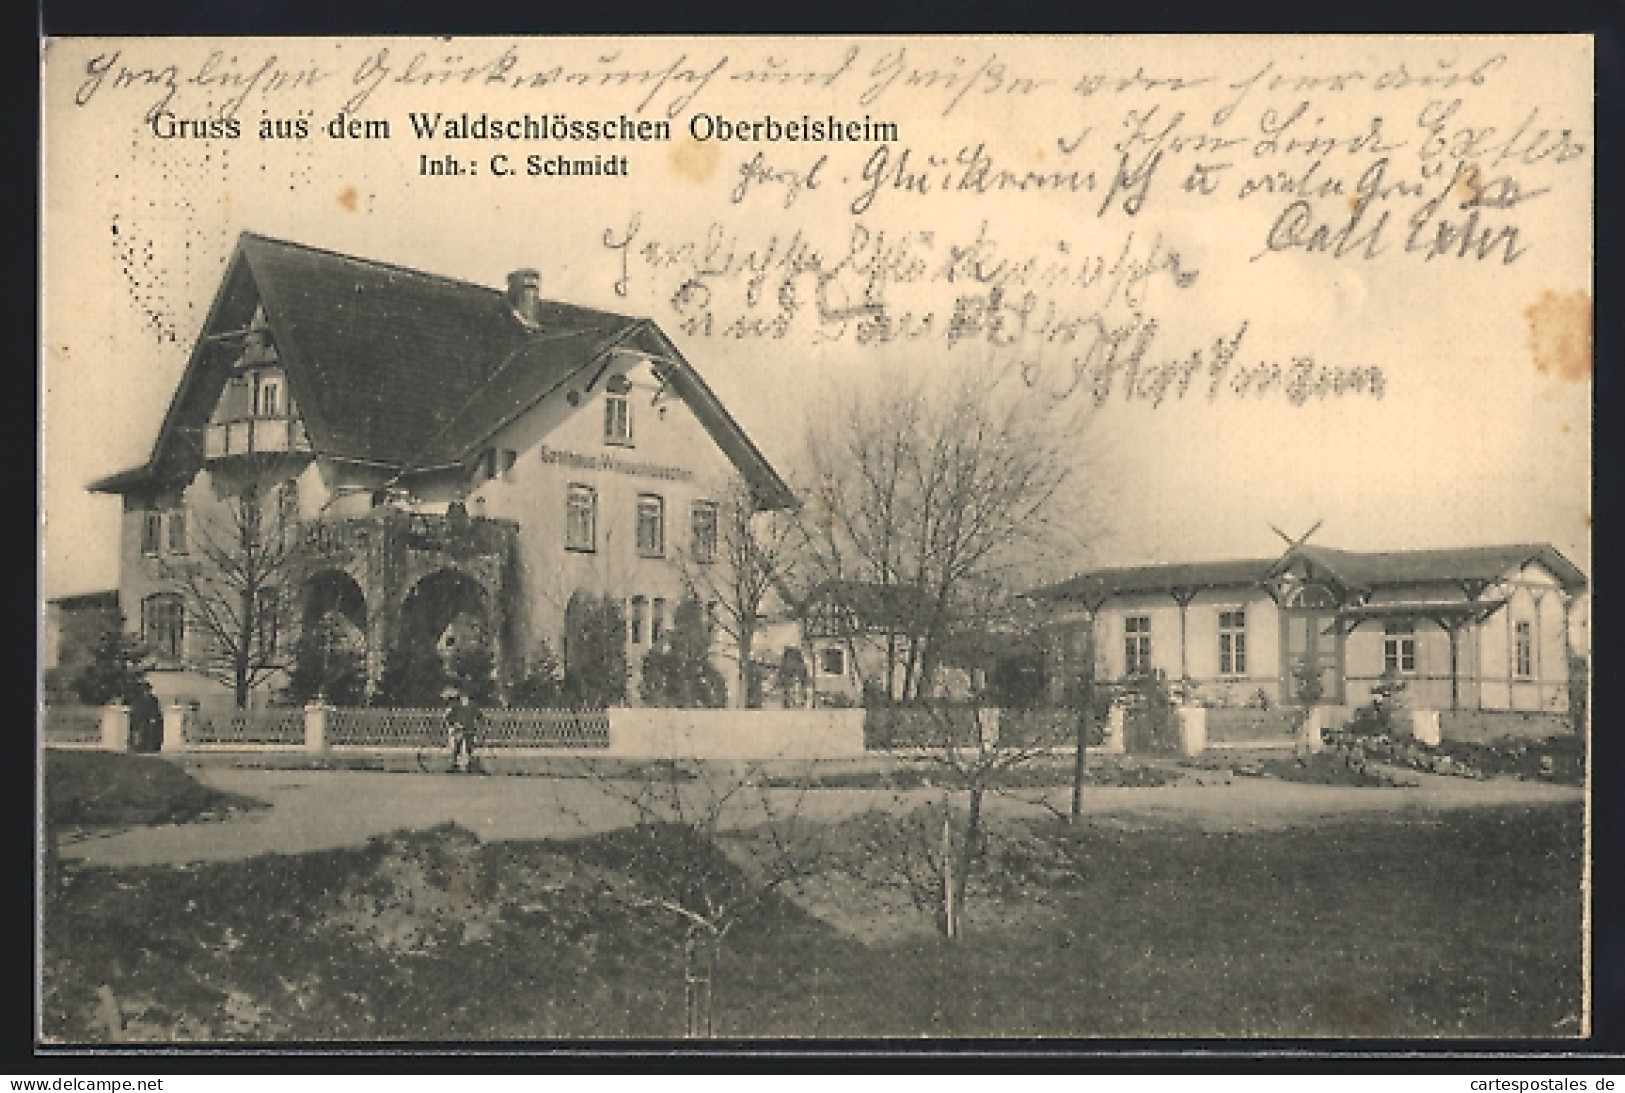 Herzlichen Glückwunsch und Grüße von hier aus
Gruss aus dem Waldschlösschen Oberbeisheim
Ihre Linde Exter
Inh.: C. Schmidt
herzl. Glückwunsch u viele Grüße
Call Exter
Herzlichste Glückwünsche
und
Hartmann
Gasthaus Waldschlösschen
www.delcampe.net
cartespostales de